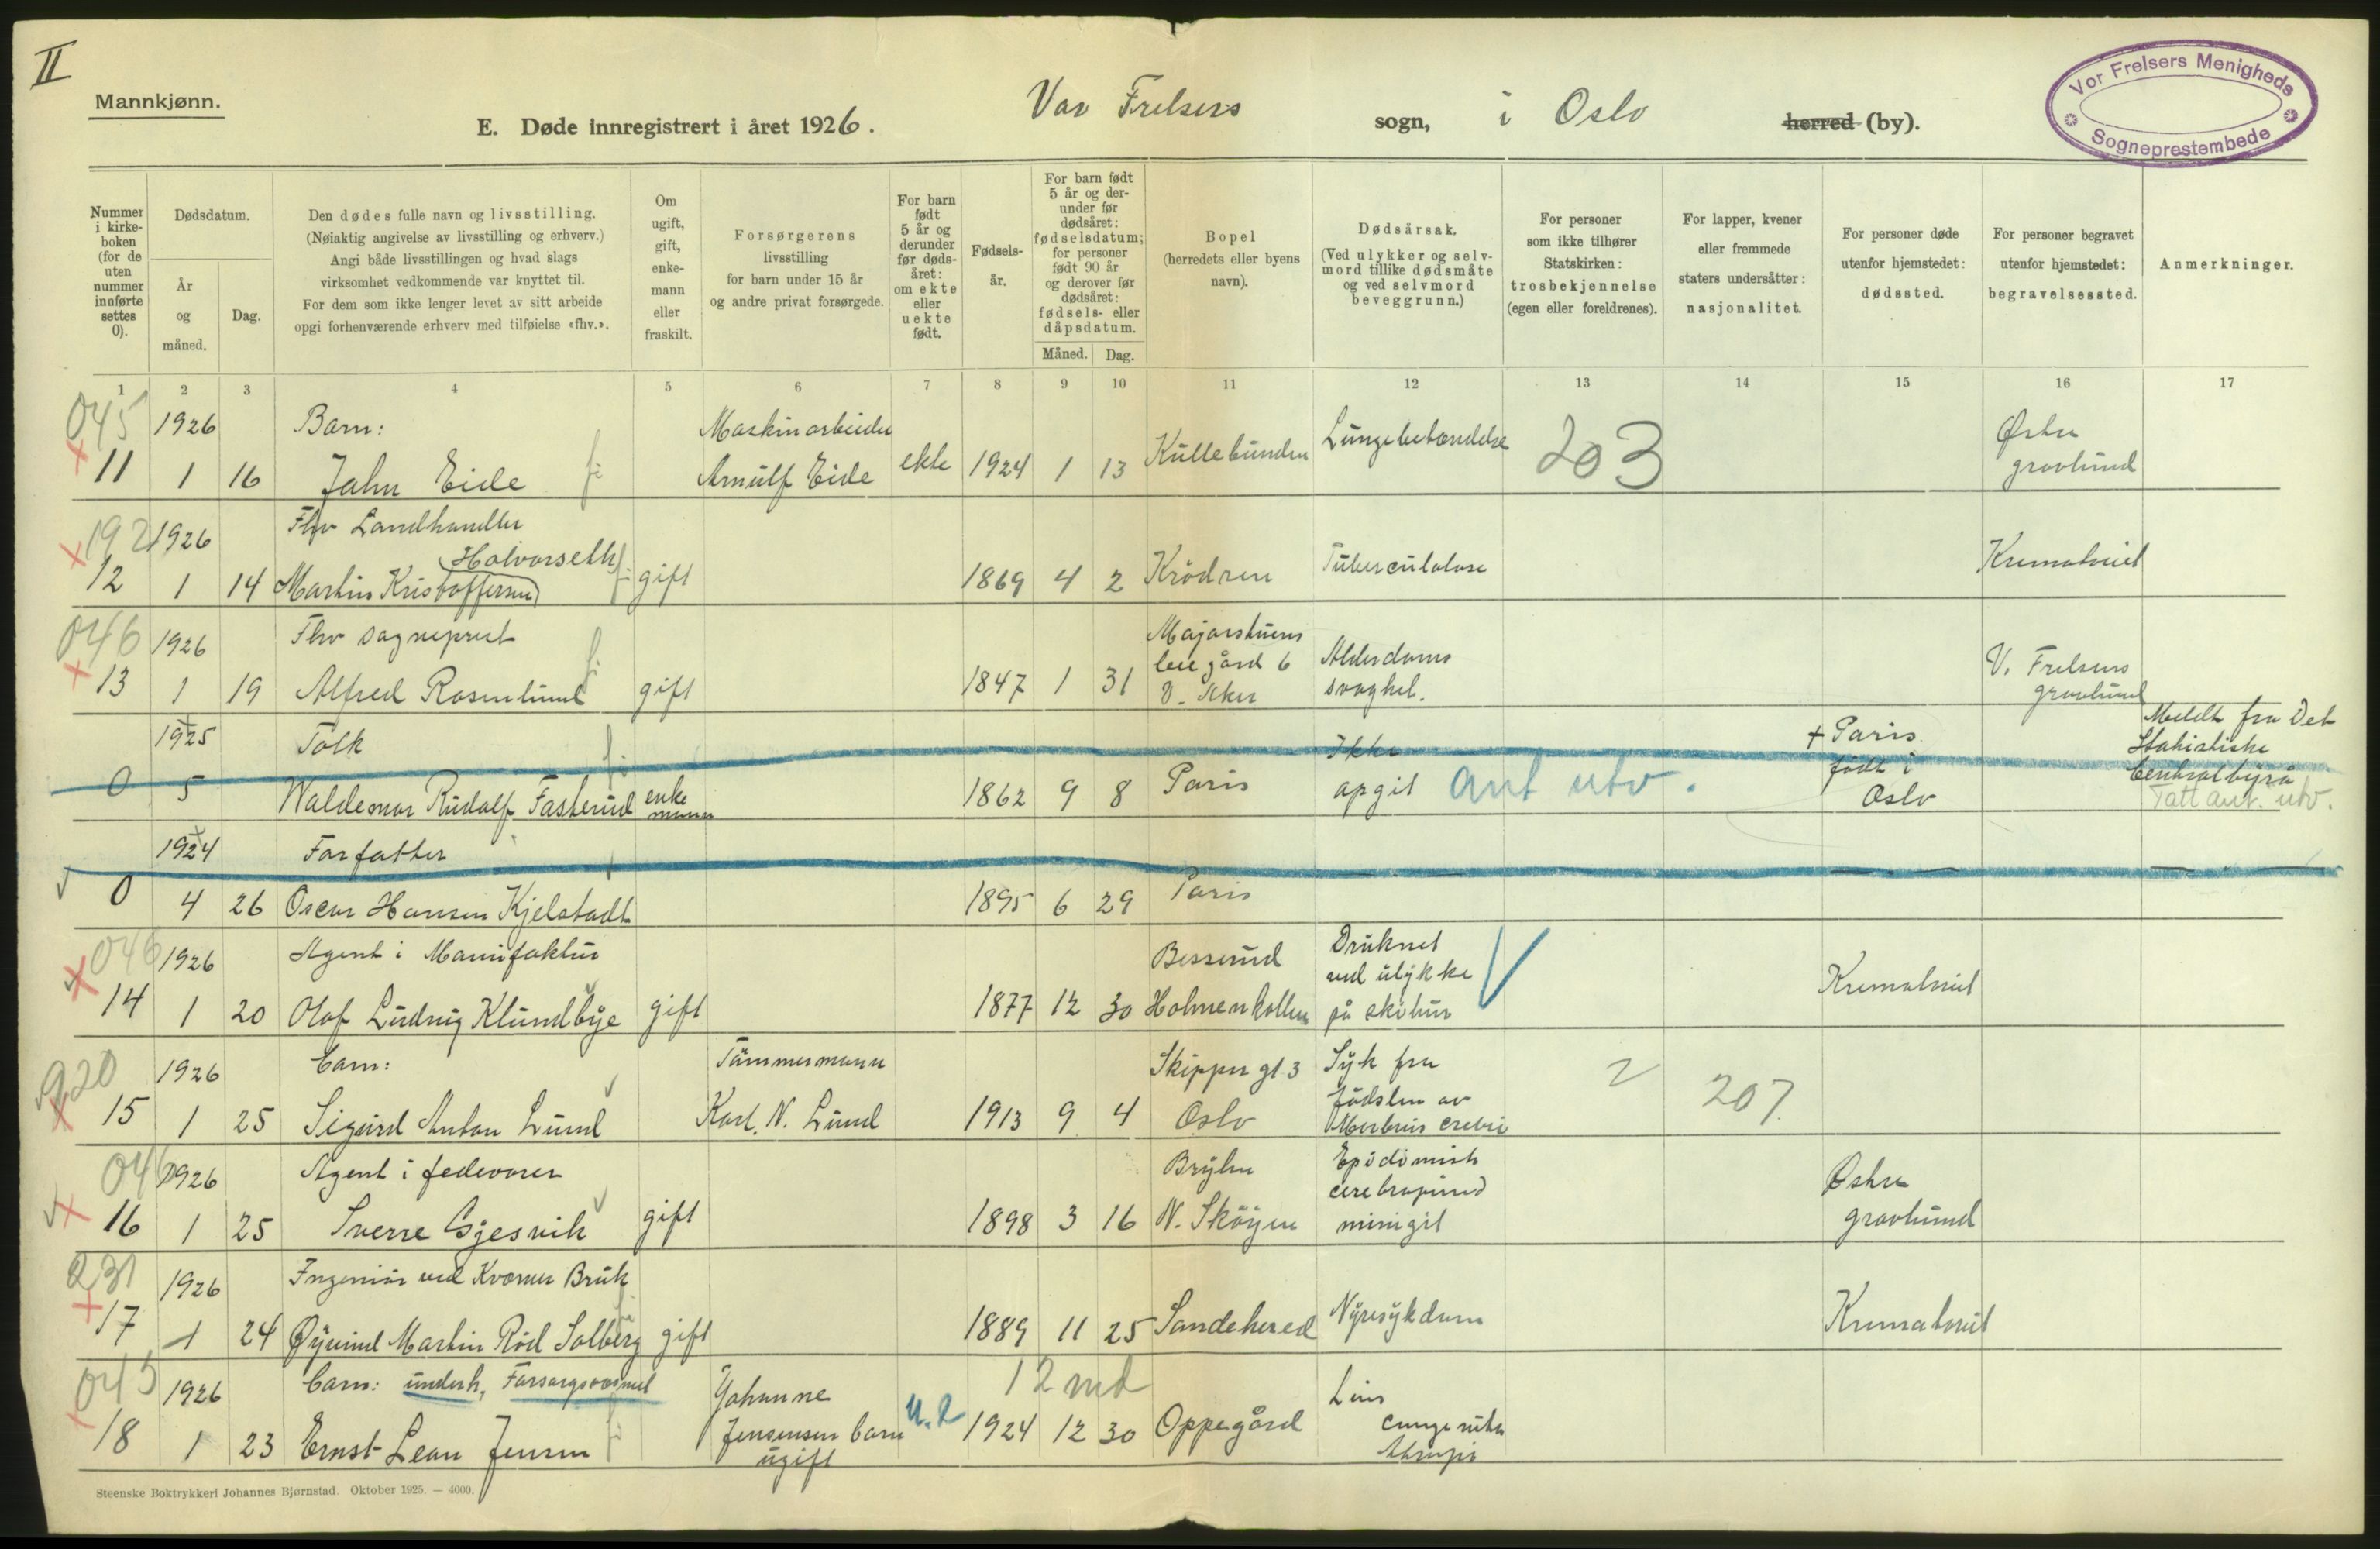 II
Mannkjønn.
E. Døde innregistrert i året 1926.
Vor Frelsers sogn, i Oslo herred (by).
Vor Frelsers Menigheds
Sogneprestembede
Nummer i kirke-boken (for de uten nummer innførte settes 0).
Dødsdatum.
År og måned.
Dag.
Den dødes fulle navn og livsstilling.
(Nøiaktig angivelse av livsstilling og erhverv.)
Angi både livsstillingen og hvad slags
virksomhet vedkommende var knyttet til.
For dem som ikke lenger levet av sitt arbeide
opgi forhenværende erhverv med tilføielse «fhv.».
Om ugift, gift, enke-mann eller fraskilt.
Forsørgerens
livsstilling
for barn under 15 år
og andre privat forsørgede.
For barn født 5 år og derunder før døds-året: om ekte eller uekte født.
Fødsels-år.
For barn født 5 år og der-under før dødsåret: fødselsdatum; for personer født 90 år og derover før dødsåret: fødsels- eller dåpsdatum.
Måned.
Dag.
Bopel
(herredets eller byens
navn).
Dødsårsak.
(Ved ulykker og selv-
mord tillike dødsmåte
og ved selvmord
beveggrunn.)
For personer
som ikke tilhører
Statskirken:
trosbekjennelse
(egen eller foreldrenes).
For lapper, kvener
eller fremmede
staters undersåtter:
nasjonalitet.
For personer døde
utenfor hjemstedet:
dødssted.
For personer begravet
utenfor hjemstedet:
begravelsessted.
Anmerkninger.
1 2 3 4 5 6 7 8 9 10 11 12 13 14 15 16 17
045 1926 Barn: Maskinarbeider Lungebetændelse 203 Østre
11 1 16 John Eide Arnulf Eide ekte 1924 1 13 Kullebunden gravlund
192 1926 Fhv Landhandler
Halvorseth
12 1 14 Martin Kristoffersen gift 1869 4 2 Krödren Tuberculolose Krematoriet
046 1926 Fhv sogneprest Majorstuens
leiegård 6 Alderdoms V. Frelsers
13 1 19 Alfred Rosenlund gift 1847 1 31 V. Aker svaghet. gravlund
1925 Tolk Ikke + Paris Meldt fra Det
Statistiske
født i Centralbyrå
0 5 Waldemar Rudolf Fasterud enke mann 1862 9 8 Paris opgit ant utv. Oslo Tatt ant. utv.
1924 Forfatter
0 4 26 Oscar Hansen Kjelstadt 1895 6 29 Paris
046 1926 Agent i Manufaktur Besserud Druknet
ved ulykke Krematoriet
14 1 20 Olof Ludvig Klundbye gift 1877 12 30 Holmenkollen på skitur
920 1926 Barn: Tömmermann Skipper gt 3 Syk fra 2 207.
fødslen av
15 1 25 Sigurd Anton Lund Karl. N. Lund 1913 9 4 Oslo Morbus crebri
046 1926 Agent i fedevarer Bryhn Epidimisk Østre
16 1 25 Sverre Gjesvik gift 1898 3 16 N. Skøyen minigit gravlund
231 1926 Ingeniör ved Kværner Bruk
17 1 24 Øyvind Martin Rød Solberg gift 1889 11 25 Sandehered Nyresykdom Krematoriet
045 1926 Barn: underh, Forsorgsvæsenet Johanne 12 md
18 1 23 Ernst Leon Jensen Jensensen barn u.e 1924 12 30 Oppegård
ugift
Steenske Boktrykkeri Johannes Bjørnstad. Oktober 1925. — 4000.